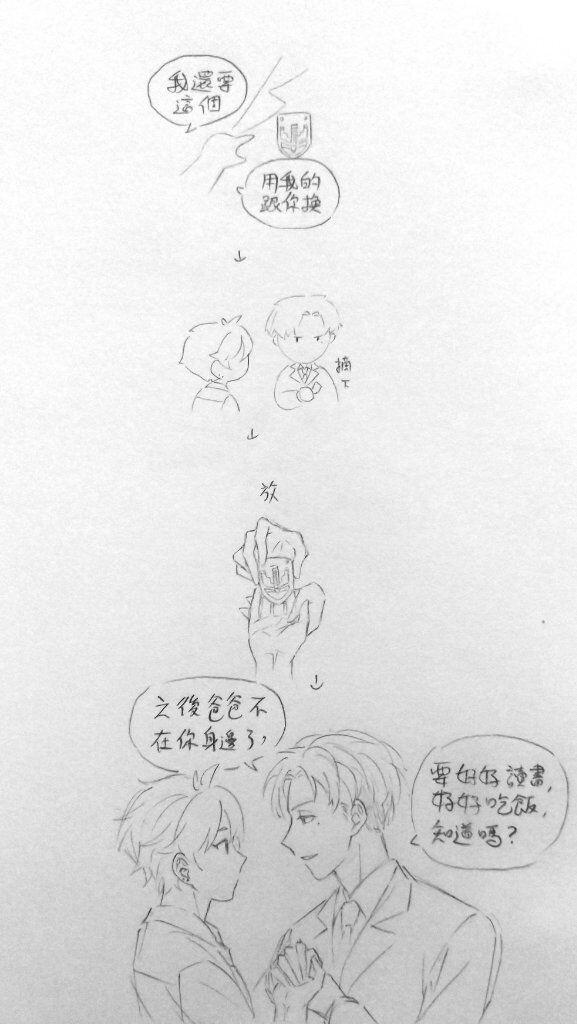 我還要
這個
用我的
跟你換
摘
下
放
之後爸爸不
在你身邊了，
要好好讀書，
好好吃飯，
知道嗎？